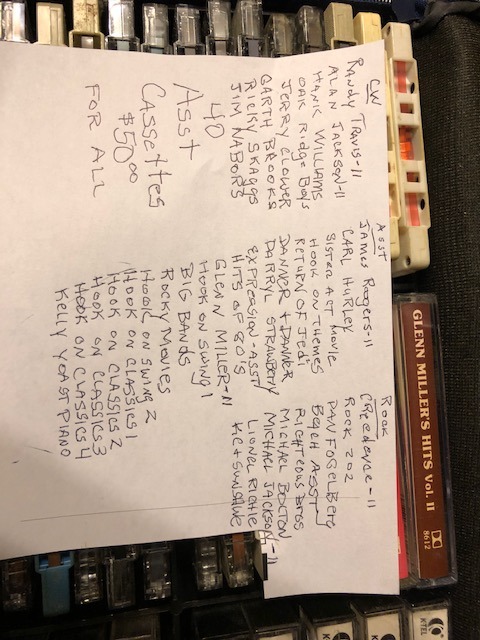 CW
RANDY TRAVIS-11
ALAN JACKSON-11
HANK WILLIAMS
OAK RIDGE BOYS
JERRY CLOWER
GARTH BROOKS
RICKY SKAGGS
JIM NABORS
40
ASST
CASSETTES
$50.00
FOR ALL
ASST
JAMES ROGERS-11
CARL HURLEY
SISTER ACT MOVIE
HOOK ON THEMES
RETURN OF JEDI
DANNER + DANNER
DARRYL STRAWBERRY
EXPRESSION-ASST
HITS OF 80'S
GLENN MILLER-11
HOOK ON SWING 1
BIG BANDS
ROCKY MOVIES
HOOK ON SWING 2
HOOK ON CLASSICS 1
HOOK ON CLASSICS 2
HOOK ON CLASSICS 3
HOOK ON CLASSICS 4
KELLY YOAST PIANO
ROCK
CREEDENCE-11
ROCK 202
DAN FOGELBERG
BEACH ASST
RIGHTEOUS BROS
MICHAEL BOLTON
MICHAEL JACKSON-11
LIONEL RICHIE
KC + SUNSHINE
GLENN MILLER'S HITS Vol. II
8612
KTEL
KTEL